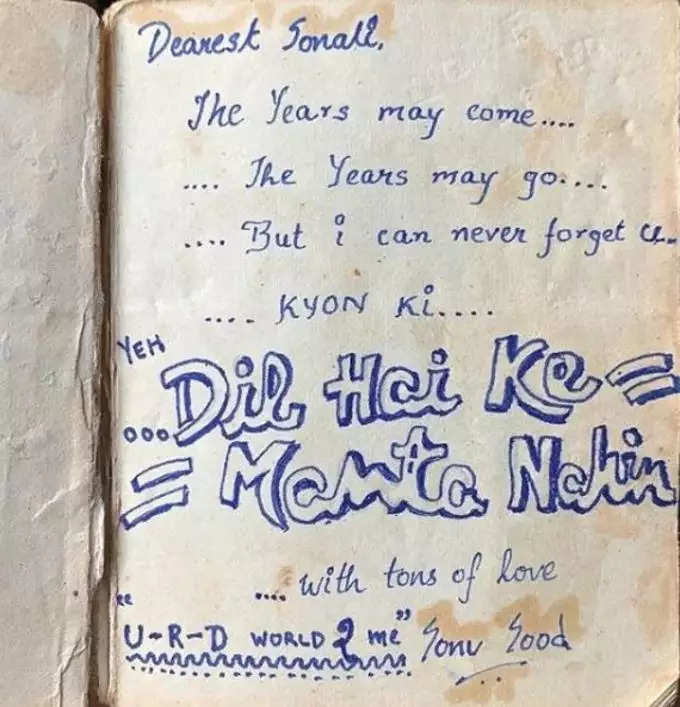 Dearest Sonali,
The Years may come....
.... The Years may go....
.... But i can never forget u..
.... KYON Ki.....
YEH
...Dil Hai Ke =
= Manta Nahin
.... with tons of love
"U-R-D WORLD 2 me" Sonu Sood